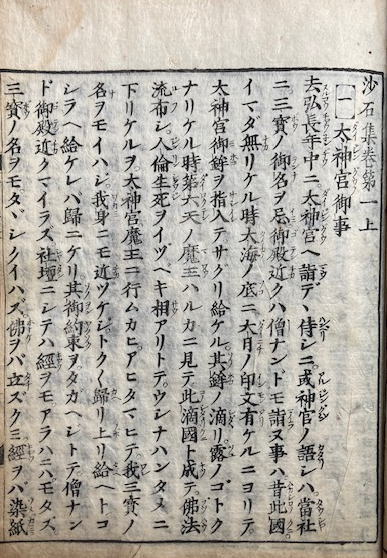 沙石集巻第一上
一 太神宮御事
去弘長年中ニ太神宮ヘ詣デヽ侍シニ或神官ノ語シハ當社
ニ三寳ノ御名ヲ忌御殿近クハ僧ナンドモ詣ヌ事ハ昔此國
イマダ無リケル時太海ノ底ニ大日ノ印文有ケルニヨリテ
太神宮御鉾ヲ指入テサクリ給ケル其鉾ノ滴リ露ノゴトク
ナリケル時第六天ノ魔王ハルカニ見テ此滴國ト成テ佛法
流布シ人倫生死ヲイヅベキ相アリトテウシナハンタメニ
下リケルヲ太神宮魔王ニ行ムカヒアヒタマヒテ我三寳ノ
名ヲモイハジ我身ニモ近ヅケジトク〳〵歸リ上リ給ヘトコ
シラヘ給ケレバ歸ニケリ其御約束ヲタガヘジトテ僧ナン
ド御殿近クマイラズ社壇ニシテハ經ヲモアラハニハモタズ
三寳ノ名ヲモタヾシクイハズ佛ヲバ立ズクミ經ヲバ染紙